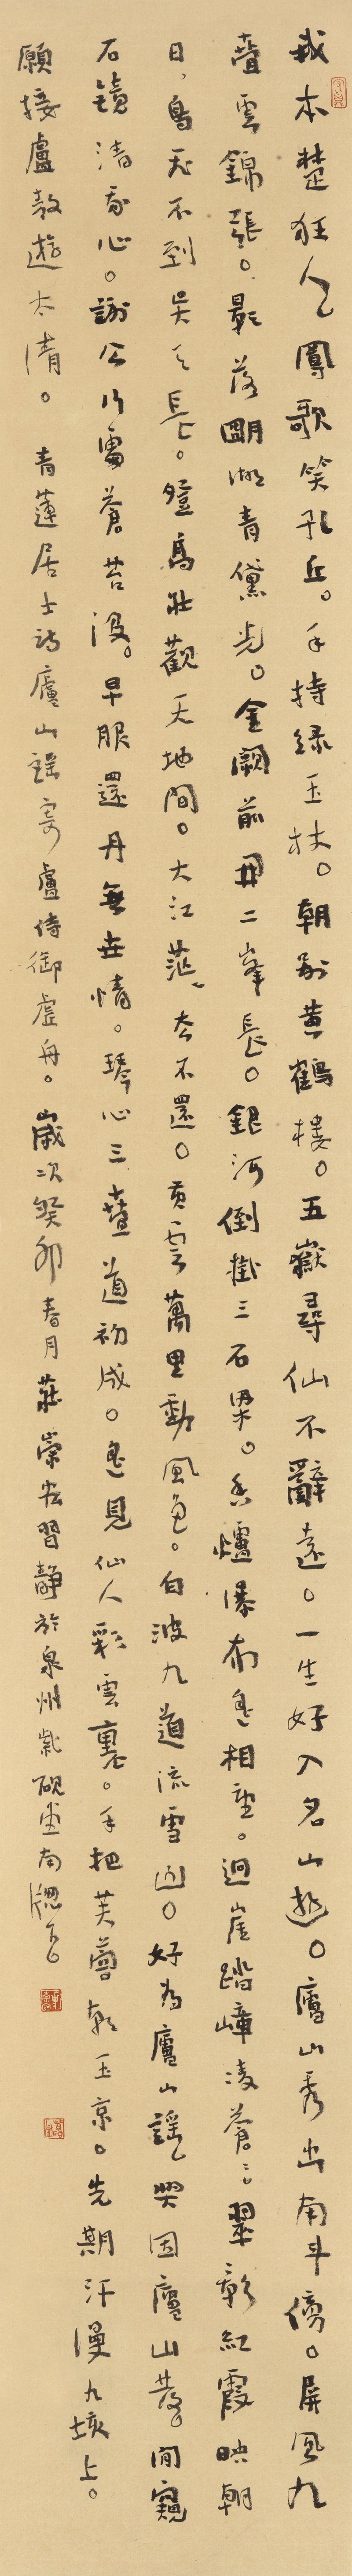 我本楚狂人。鳳歌笑孔丘。手持綠玉杖。朝別黃鶴樓。五嶽尋仙不辭遠。一生好入名山遊。廬山秀出南斗傍。屏風九
疊雲錦張。影落明湖青黛光。金闕前開二峯長。銀河倒掛三石梁。香爐瀑布遙相望。迴崖踏嶂凌蒼蒼。翠影紅霞映朝
日,鳥飛不到吳天長。登高壯觀天地間。大江茫茫去不還。黃雲萬里動風色。白波九道流雪山。好為廬山謠,興因廬山發。閒窺
石鏡清我心。謝公行處蒼苔沒。早服還丹無世情。琴心三疊道初成。遙見仙人彩雲裏。手把芙蓉朝玉京。先期汗漫九垓上。
願接盧敖遊太清。 青蓮居士詩廬山謠寄盧侍御虛舟。歲次癸卯春月莊崇宏習靜於泉州紫硯堂南牕下